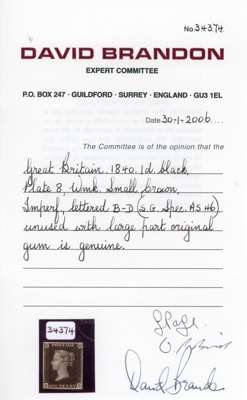 No. 34374
DAVID BRANDON
EXPERT COMMITTEE
P.O. BOX 247 · GUILDFORD · SURREY · ENGLAND · GU3 1EL
Date 30-1-2006
The Committee is of the opinion that the
Great Britain, 1840. 1d. black,
Plate 8, Wmk. Small Crown,
Imperf, lettered B-D (S.G. Spec. AS 46)
unused with large part original
gum is genuine.
34374
David Brandon